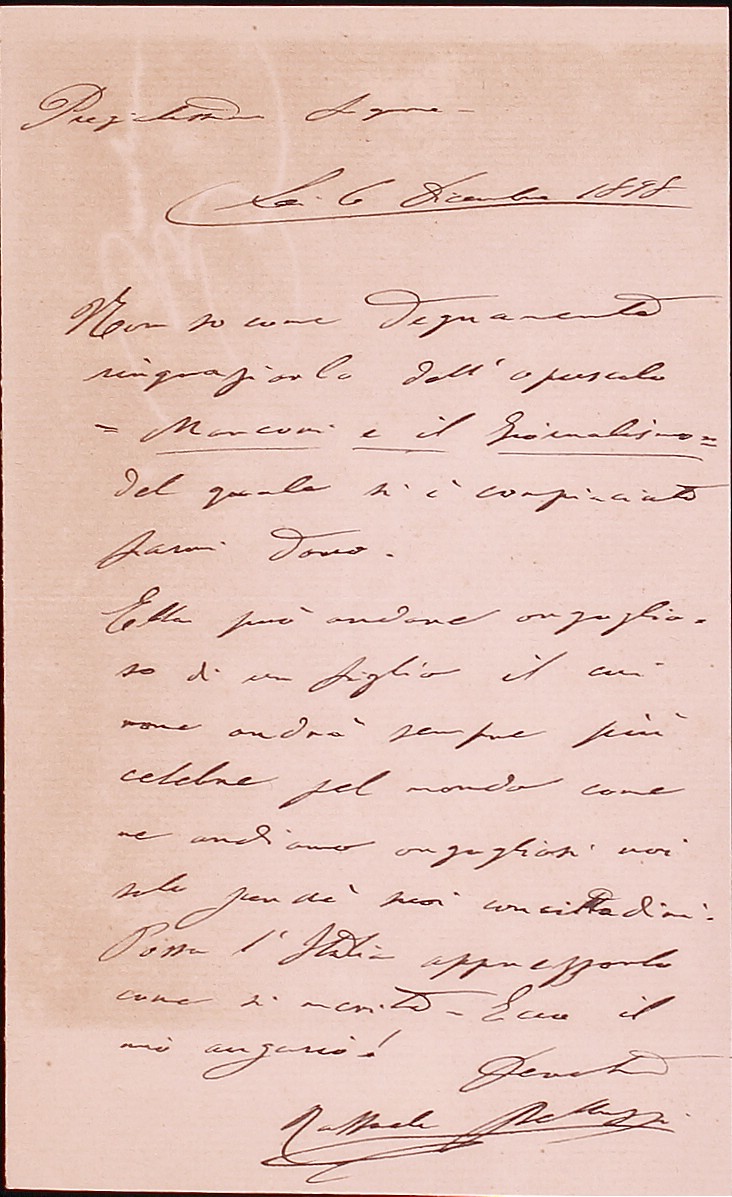 Pregiatissimo Signore
6 Dicembre 1898
Non so come degnamente
ringraziarla dell' opuscolo
= Marconi e il Giornalismo =
del quale si è compiaciuto
farmi dono.
Ella può andare orgoglio-
so di un figlio il cui
nome andrà sempre più
celebre pel mondo come
ne andiamo orgogliosi noi
solo perchè suoi concittadini.
Possa l' Italia apprezzarlo
come si merita - Ecco il
mio augurio!
Devoto
Raffaele